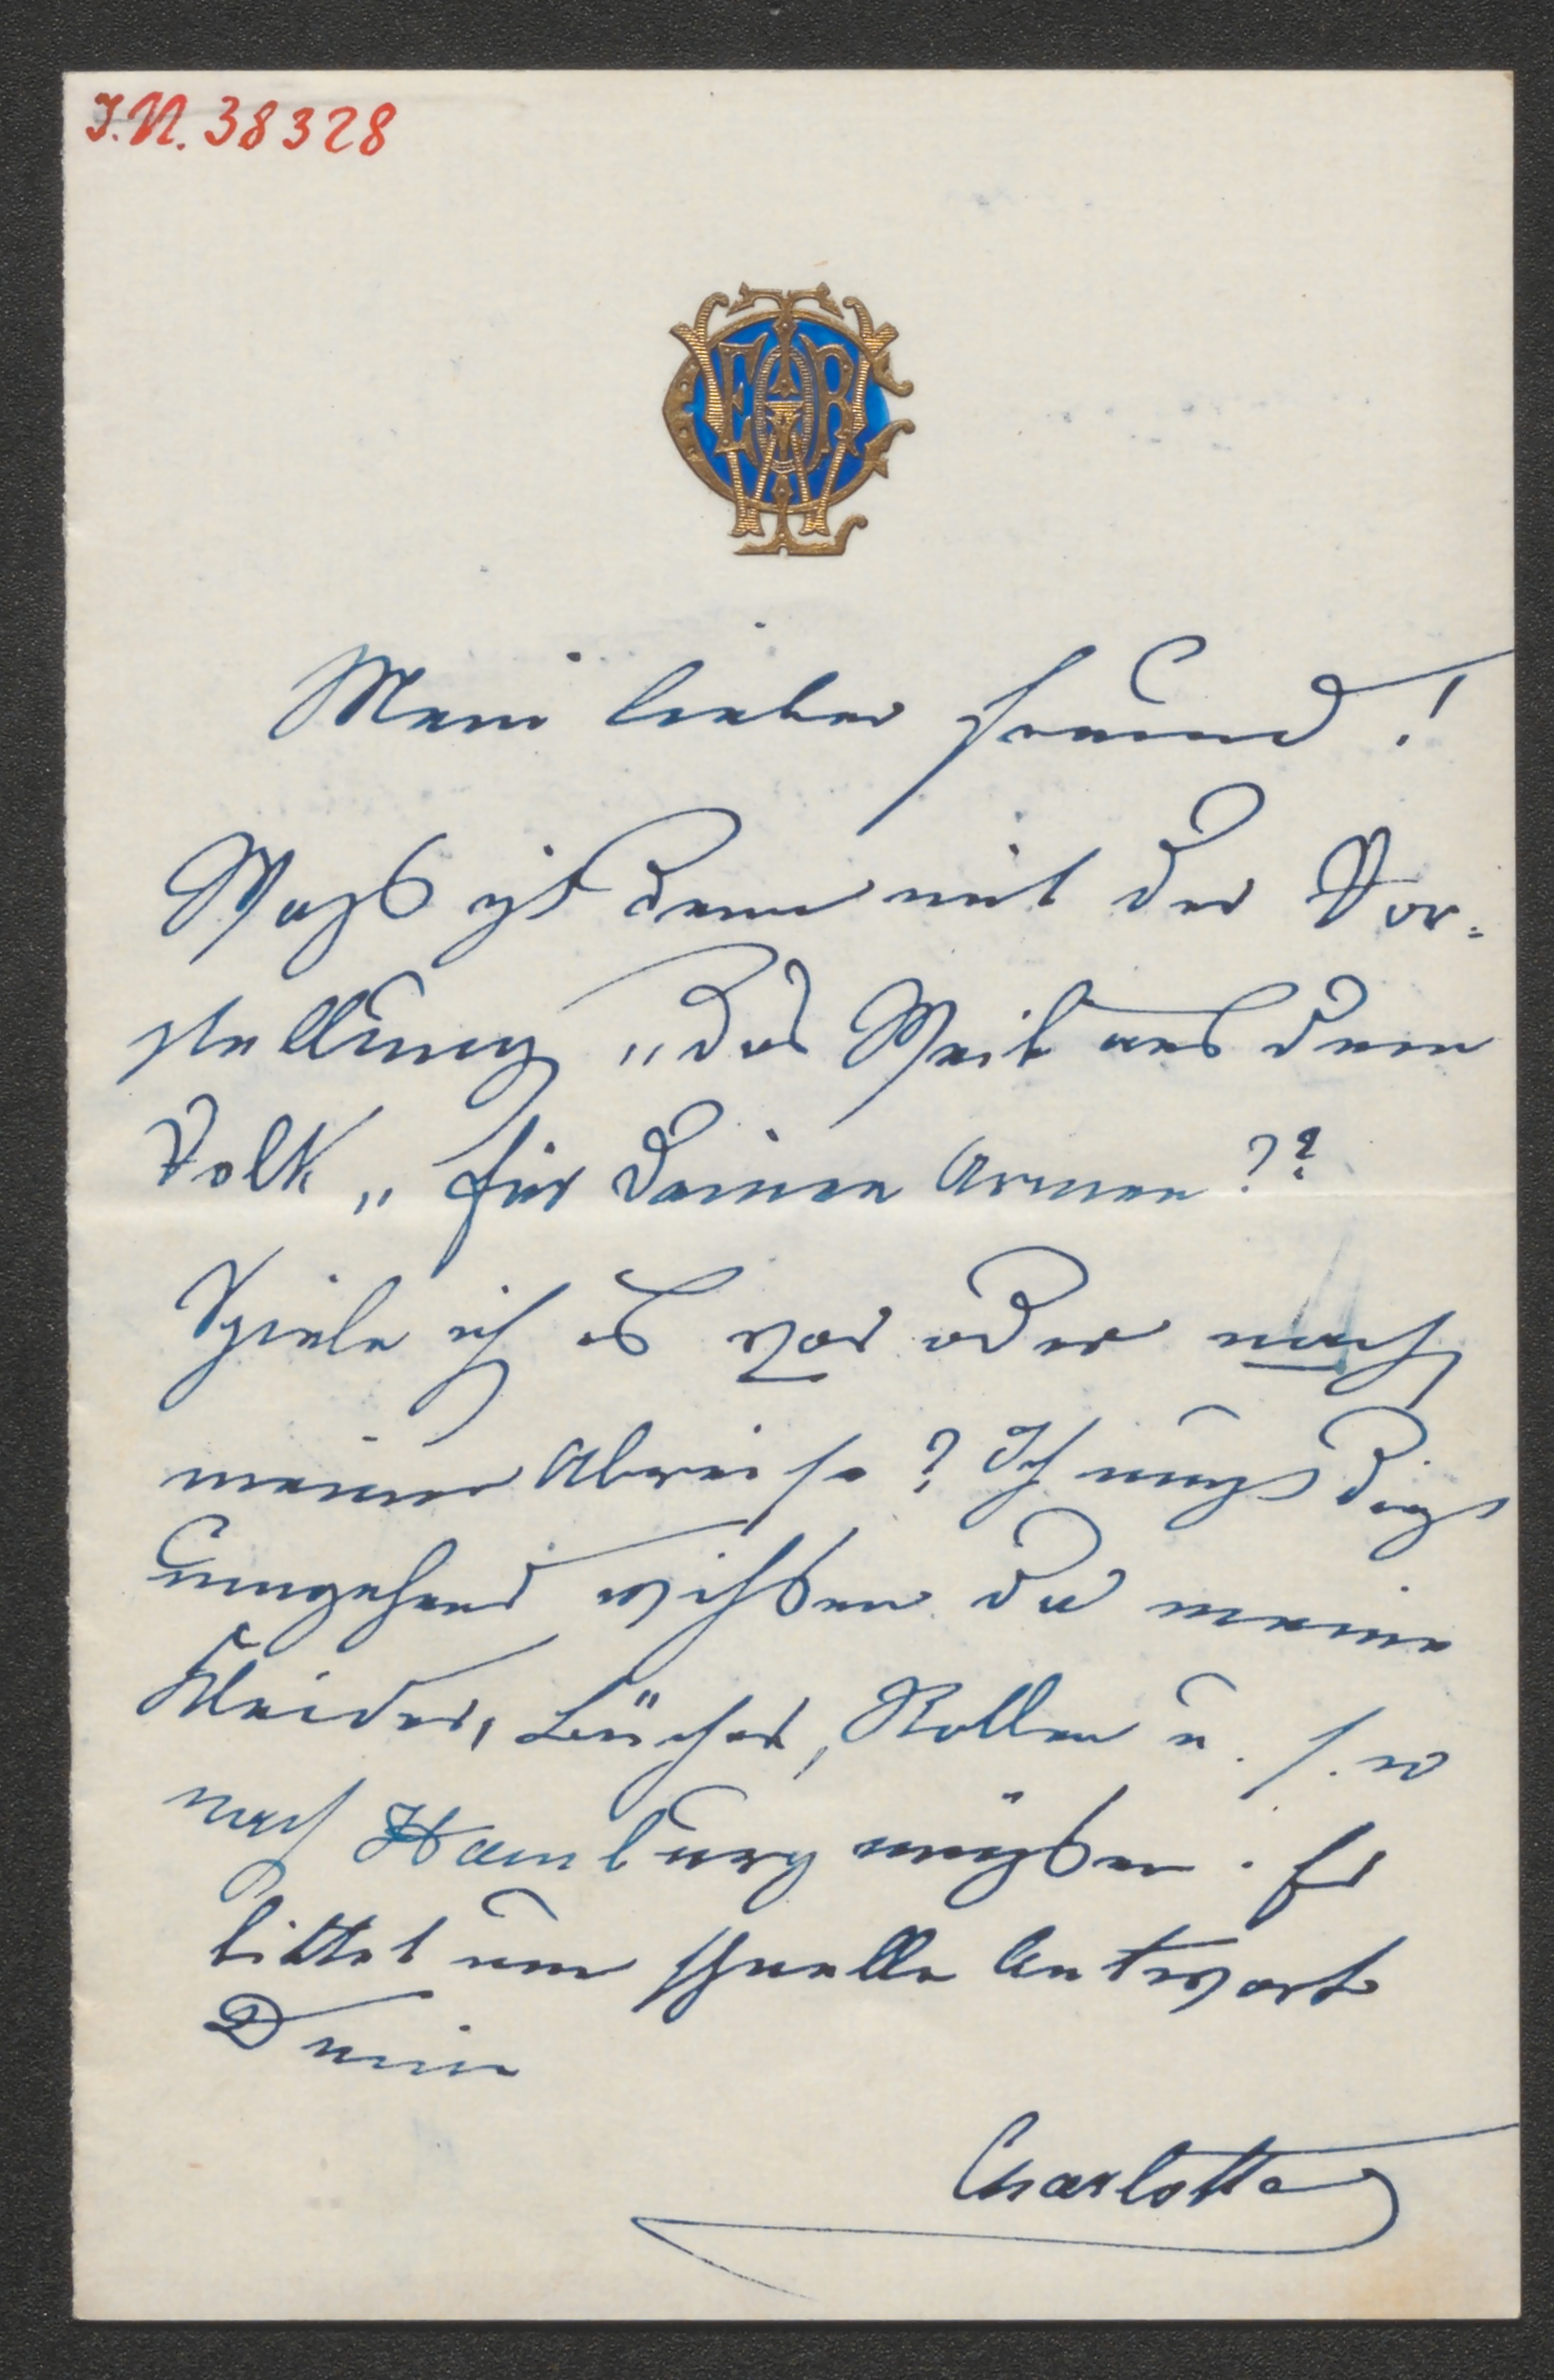 I.N. 38328
Mein lieber Freund!
Was ist denn mit der Vor-
stellung „Das Weib aus dem
Volk„ für Deine Armen??
Spiele ich es vor oder nach
meiner Abreise? Ich muss dies
umgehend wissen da meine
Kleider, Bücher, Rollen u. s. w
nach Hamburg müssen. Es
bittet um schnelle Antwort
Deine
Charlotte